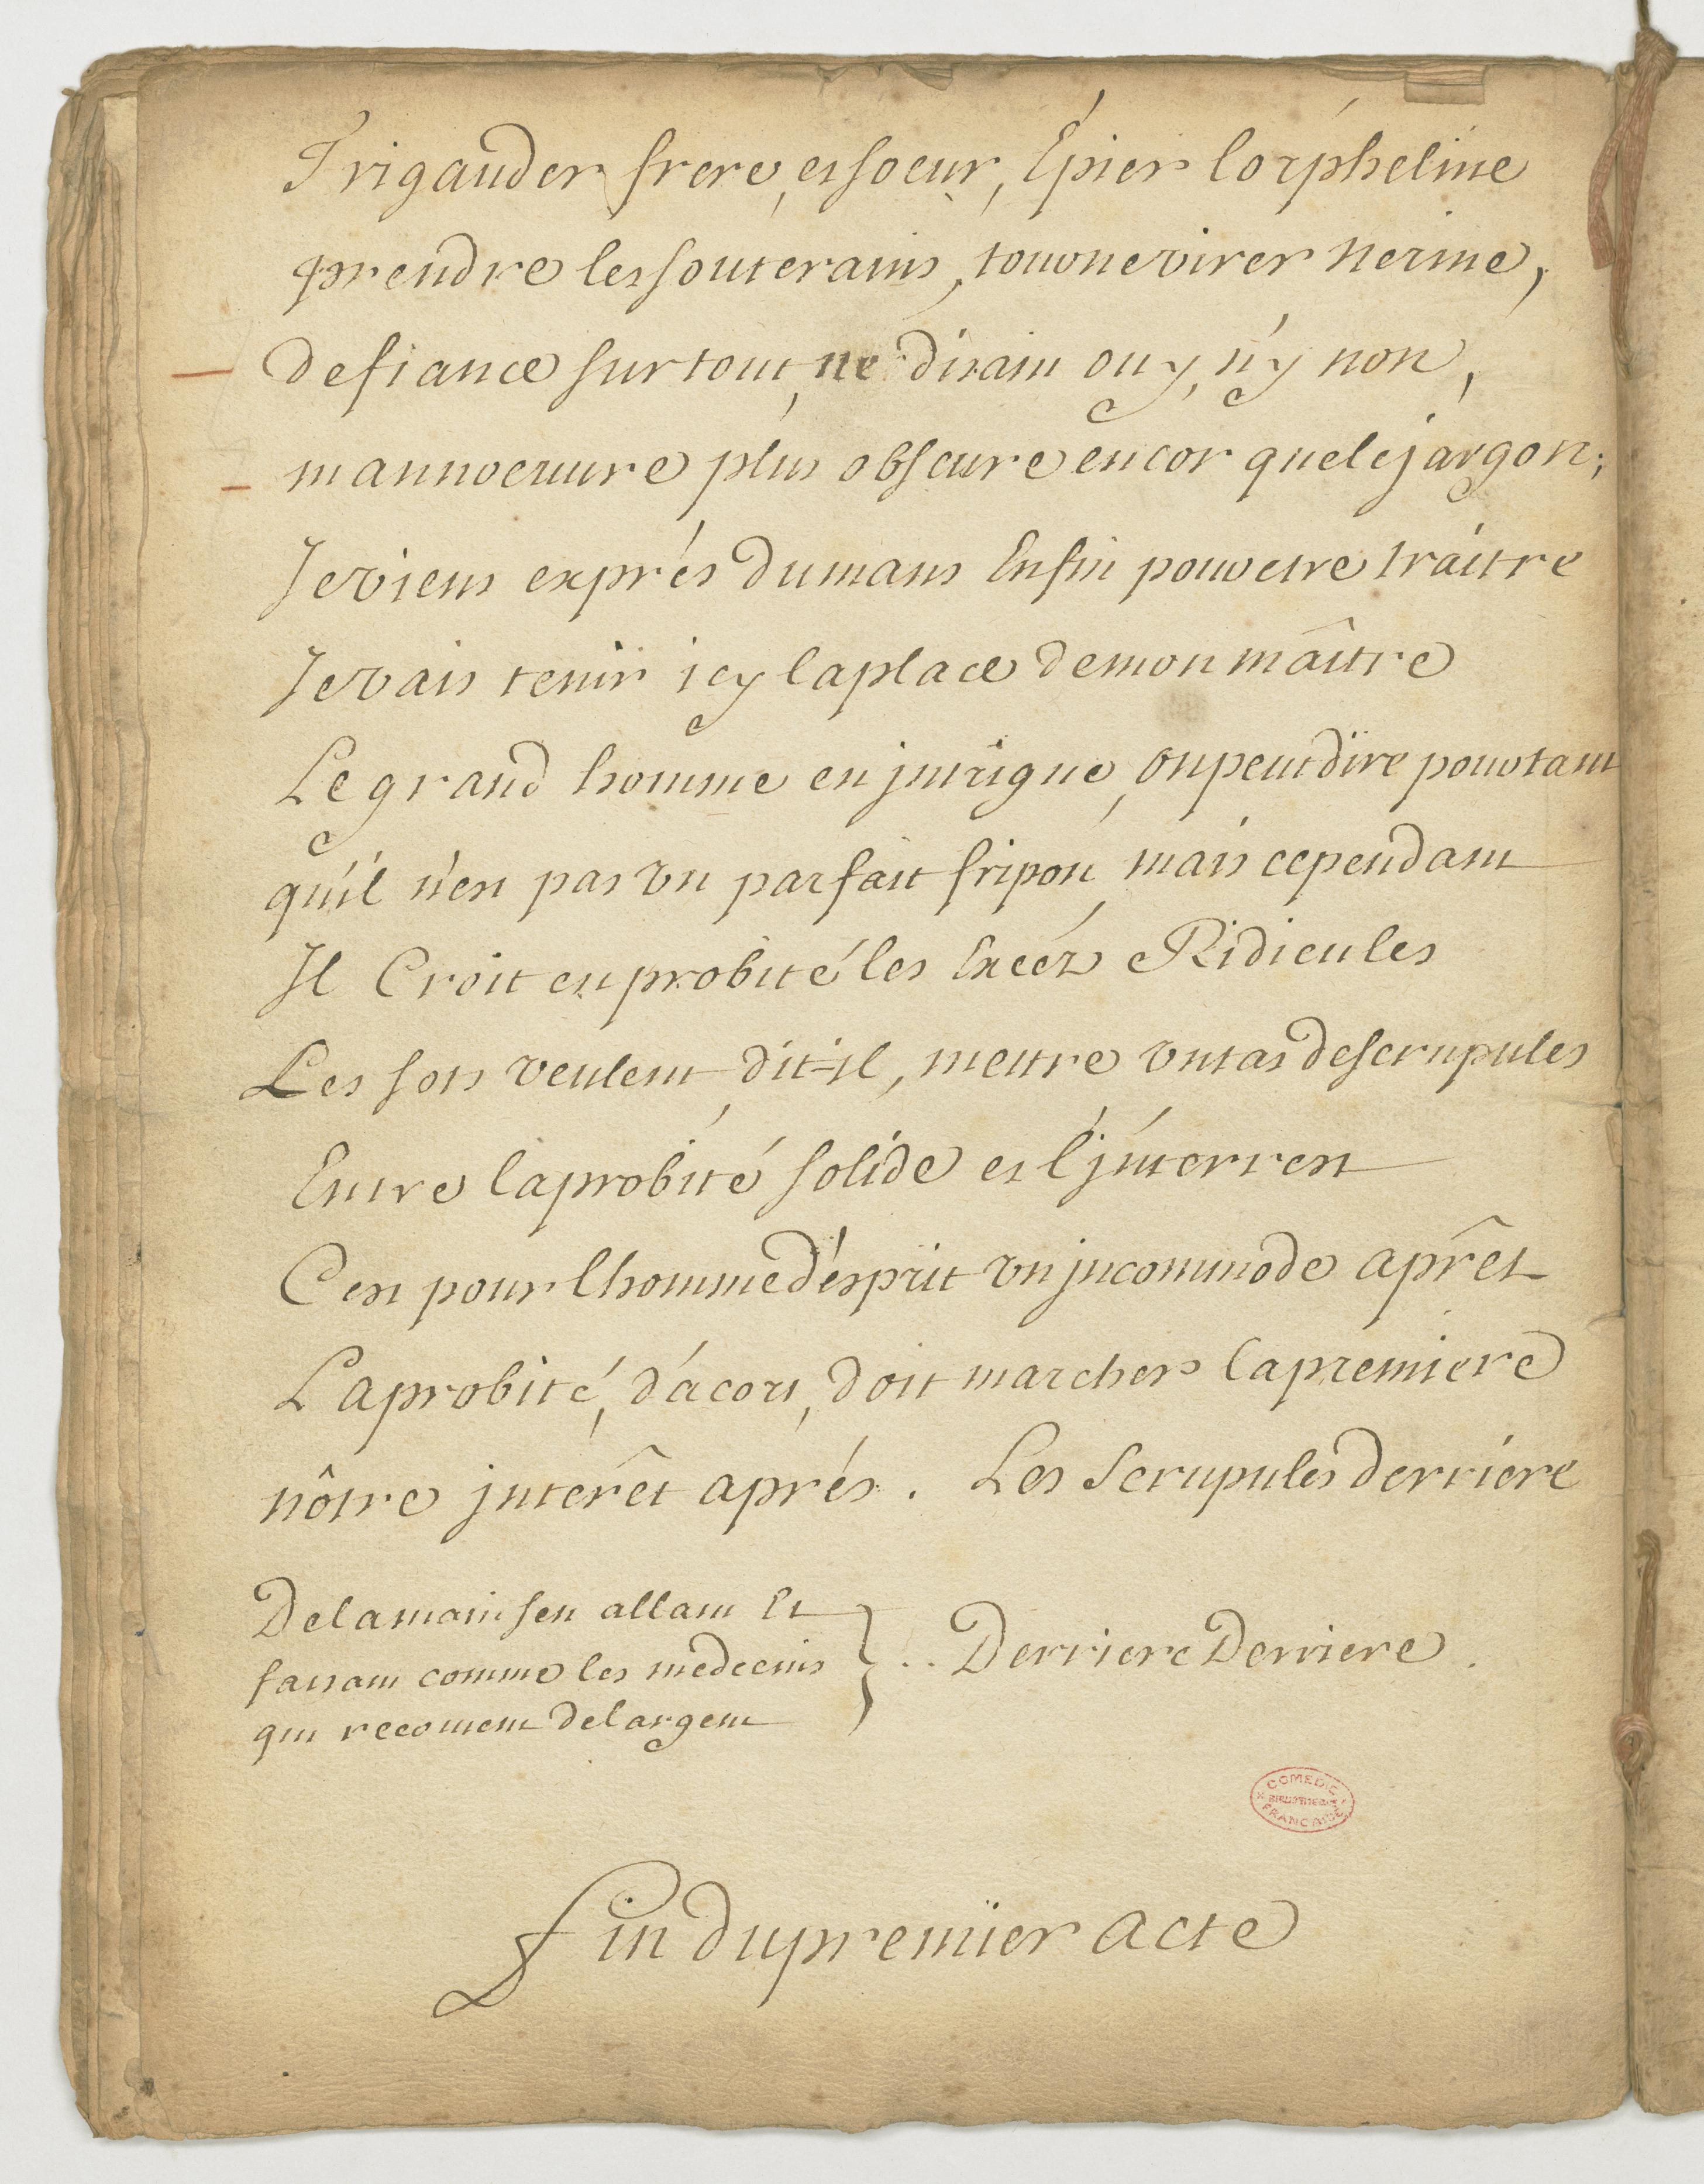 Trigauder frere, et soeur, Épier lorpheline
prendre les souterains, tourne virer nerine,
defiance sur tout, ne disant ouy, n'y non,
mannoeuure plus obscure encor que le jargon;
Je viens exprés du mans Enfin pour etre traitre
Je vais tenir icy la place de mon maître
Le grand homme en jntrigue, on peut dire pourtant
qu'il n'est pas vn parfait fripon, mais cependant
Il Croit en probité les Excéz Ridicules
Les sots veulent, dit-il, mettre vn tas de scrupules
Entre la probité solide et l'jnterrest
C'est pour l'homme d'ésprit vn jncommode aprêt
La probité, d'acort, doit marcher la premiere
nôtre jnterêt aprés. Les Scrupules derriére
De la main sen allant Et
faisant comme les medecins
qui recoiuent de largent
} .. Derriere Derriere.
COMEDIE FRANCAISE
BIBLIOTHEQUE
fin du premier acte